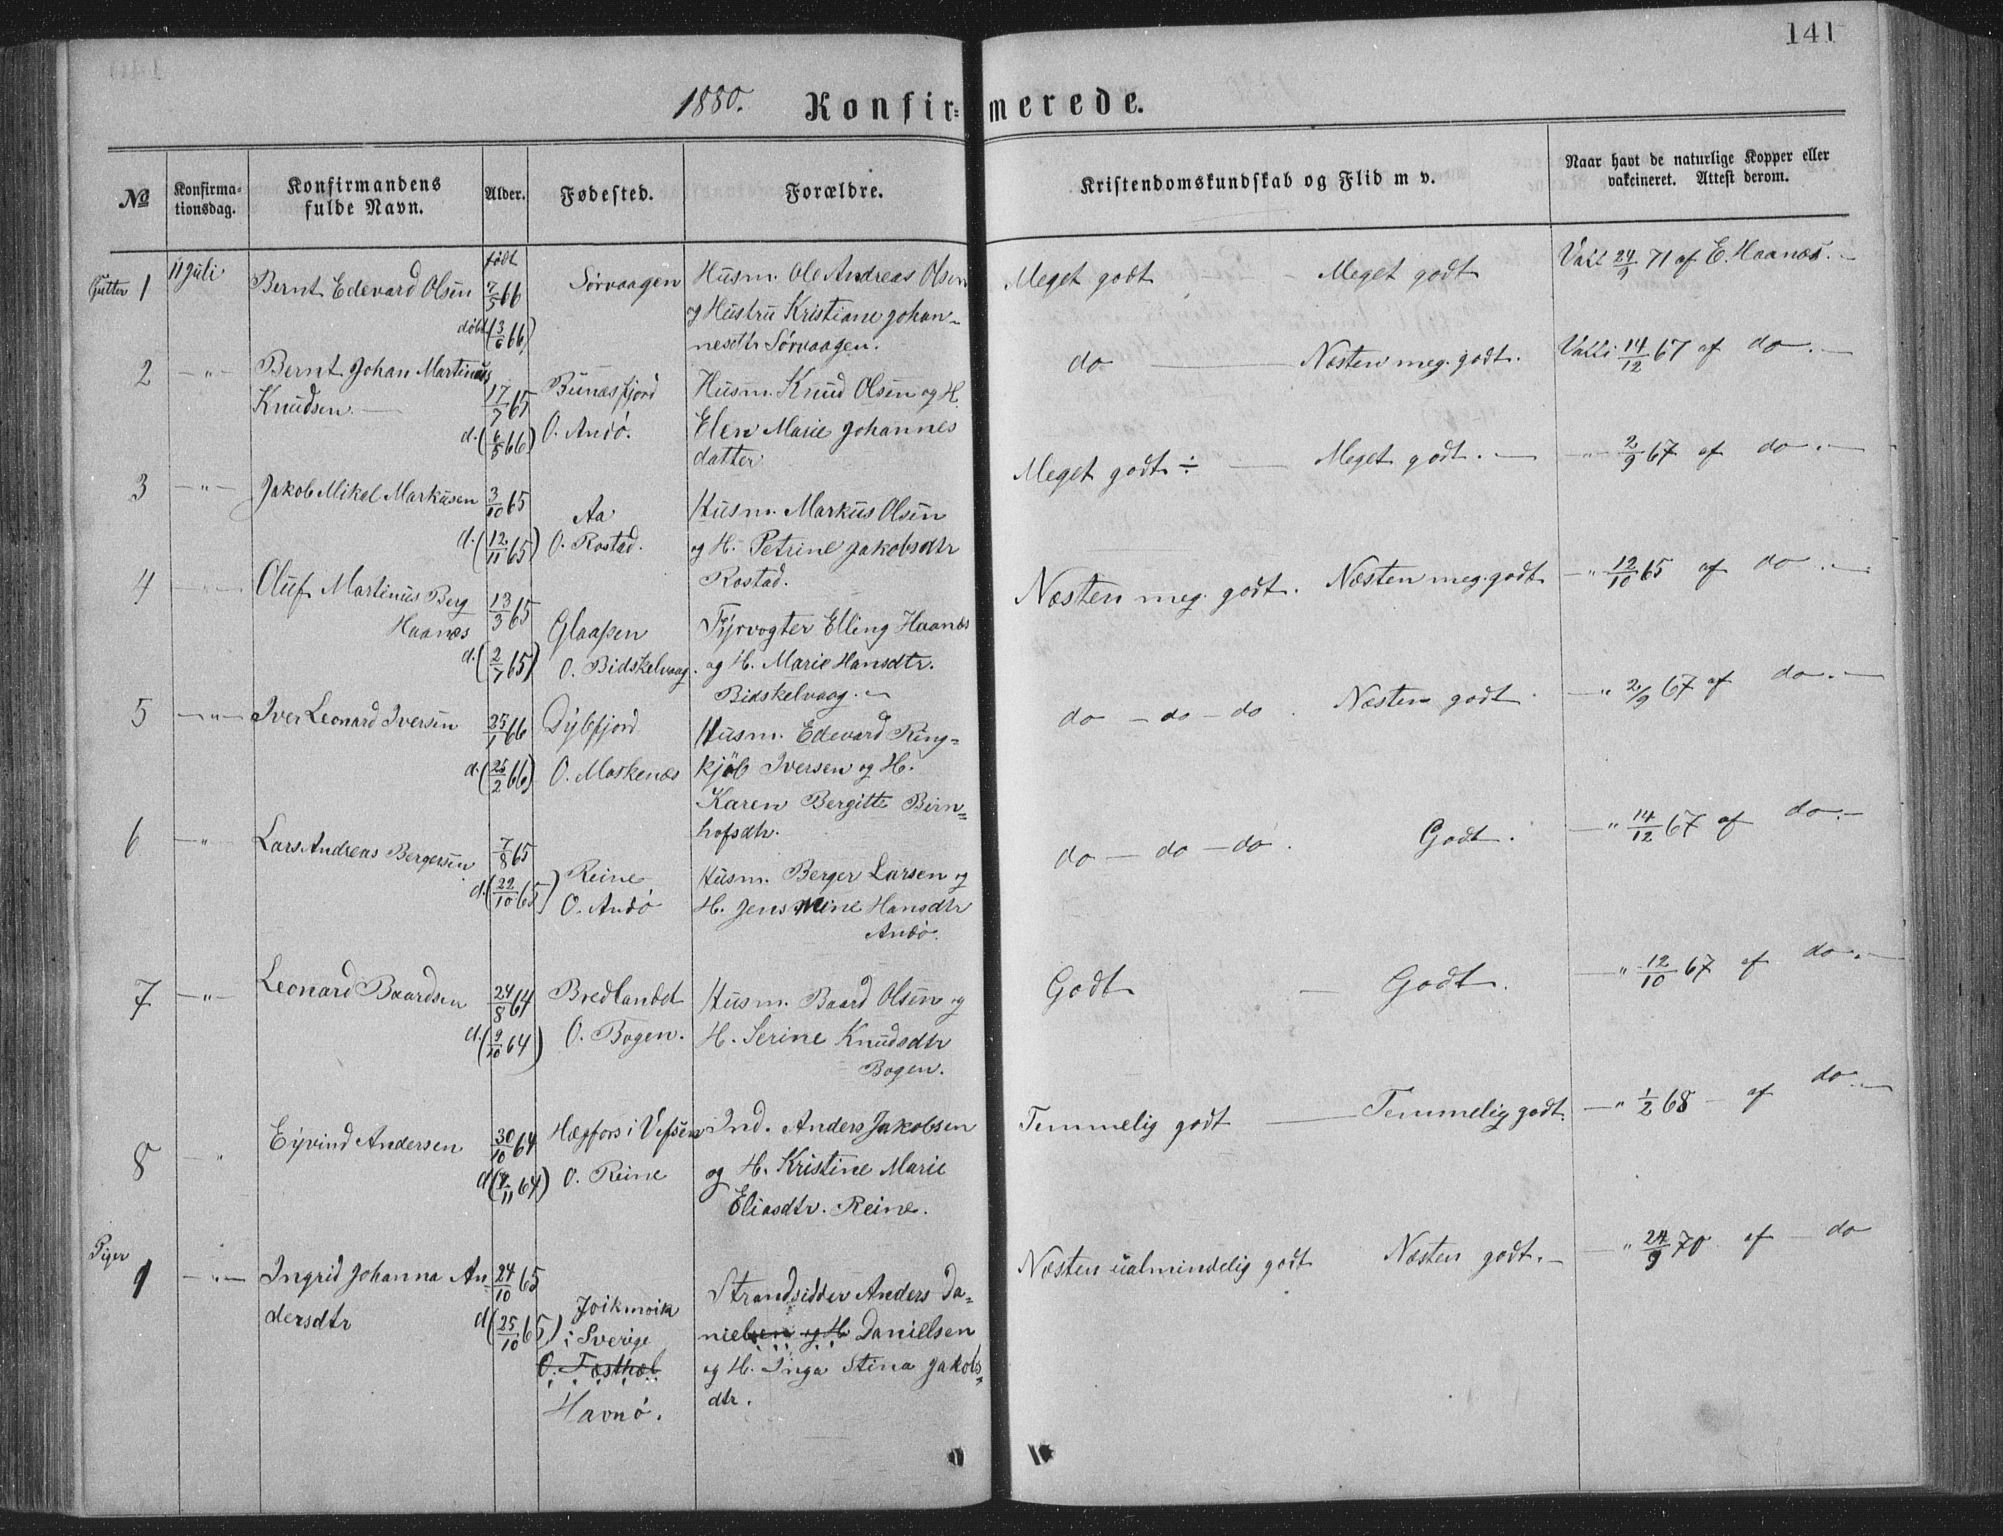 141
1880. Konfir= merede.
No
Konfirma-
tionsdag.
Konfirmandens
fulde Navn.
Alder.
Fødested.
Forældre.
Kristendomskundskab og Flid m v.
Naar havt de naturlige Kopper eller
vakcineret. Attest derom.
Gutter 1
11 Juli
Bernt Edevard Olsen
født
7/5 66
døbt (13/6 66)
Sörvaagen
Husm. Ole Andreas Olsen
og Hustru Kristiane Johan-
nesdtr Sörvaagen.
Meget godt - Meget godt
Vakc 24/9 71 af E. Haanæs. -
2 - " -
Bernt Johan Martinus
Knudsen. -
17/7 65
d. (6/5 66)
Bunæsfjord
O. Andö.
Husm. Knud Olsen og H.
Elen Marie Johannes
datter
do - Næsten meg. godt.
Vakc. 14/12 67 af do. -
3 - " -
Jakob Mikel Markusen
3/10 65
d. (12/11 65)
Aa
O. Rostad.
Husm. Markus Olsen
og H. Petrine Jakobsdtr
Rostad.
Meget godt ÷ - Meget godt. -
- " - 2/9 67 af do. -
4 - " -
Oluf Martinus Berg
Haanæs
13/3 65
d. (2/7 65)
Glaapen
O. Bidskelvaag.
Fyrvogter Elling Haanæs
og H. Marie Hansdtr.
Bidskelvaag. -
Næsten meg. godt. Næsten meg. godt
- " 12/10 65 af do. -
5 - " -
Iver Leonard Iversen
25/1 66
d. (25/2 66)
Dybfjord
O. Moskenæs
Husm. Edevard Ring=
kjöb Iversen og H.
Karen Bergitte Birn=
hofsdtr.
do - do - do. Næsten godt.
- " 2/9 67 af do. -
6 - " -
Lars Andreas Bergersen
7/8 65
d. (22/10 65)
Reine
O. Andö
Husm. Berger Larsen og
H. Jensmine Hansdtr
Andö.
do - do - do. Godt.
- " 14/12 67 af do. -
7 - " -
Leonard Baardsen
24/8 64
d. (9/10 64)
Bredlandet
O. Bogen.
Husm. Baard Olsen og
H. Serine Knudsdtr
Bogen.
Godt - Godt.
- " 12/10 67 af do. -
8 "
Eyvind Andersen
30/10 64
Hægfors i Vefsen
O. Reine
Ind. Anders Jakobsen
og H. Kristine Marie
Eliasdtr. Reine.
Temmelig godt - Temmelig godt.
- " 1/2 68 - af do. -
Piger
1 - " -
Ingrid Johanna An=
dersdtr
24/10 65
d (25/10 65)
i Sverige
Havnö.
Strandsidder Anders Da=
nielsen og H. Danielsen
og H. Inga Stina Jakobs=
dtr.
Næsten ualmindelig godt Næsten godt. -
- " 24/9 70 af - do